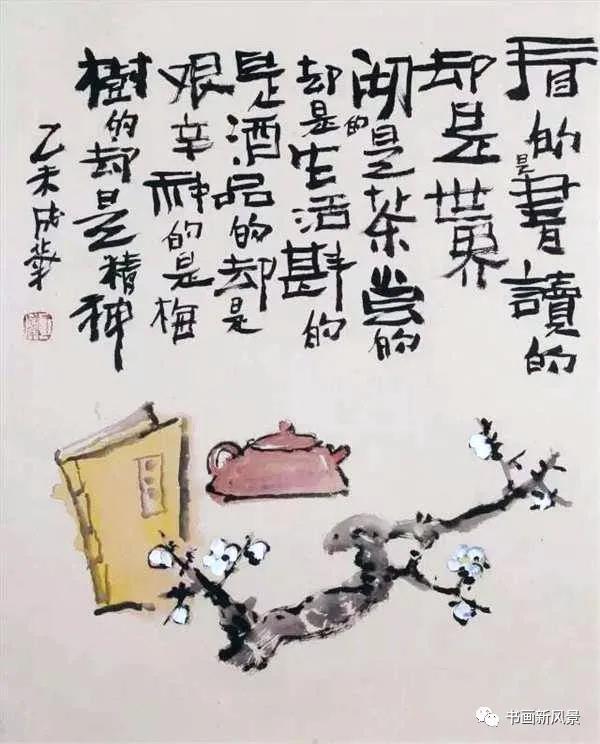 看的是書讀的
却是世界
的是茶尝的
却是生活斟的
是酒品的却是
艰辛的是梅
樹的却是精神
乙未
书画新风景